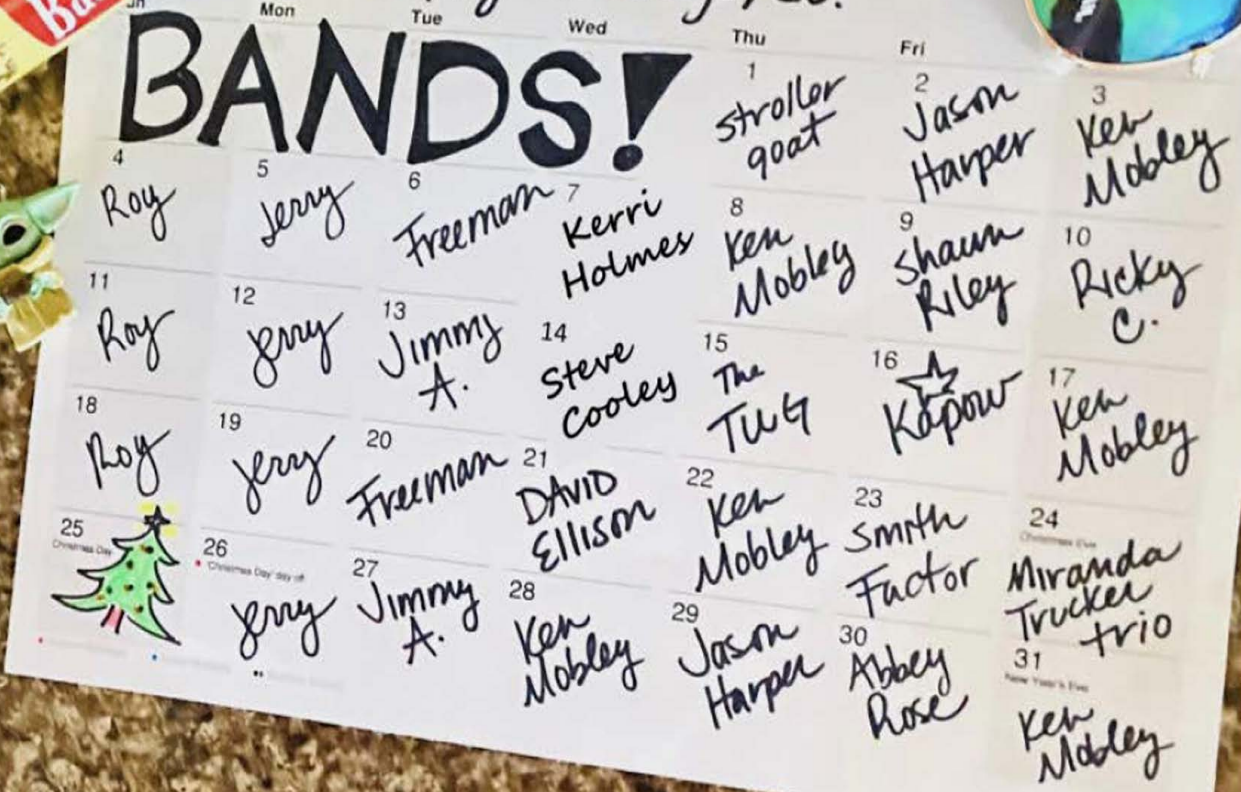 Mon
Tue
Wed
Thu
Fri
BANDS!
1
stroller
goat
2
Jason
Harper
3
Ken
Mobley
4
Roy
5
Jerry
6
Freeman
7
Kerri
Holmes
8
Ken
Mobley
9
Shaun
Riley
10
Ricky
C.
11
Roy
12
Jerry
13
Jimmy
A.
14
Steve
Cooley
15
The
TUG
16
Kapow
17
Ken
Mobley
18
Roy
19
Jerry
20
Freeman
21
DAVID
Ellison
22
Ken
Mobley
23
Smith
Factor
24
Christmas Eve
Miranda
Trucker
trio
25
Christmas Day
26
'Christmas Day' day off
Jerry
27
Jimmy
A.
28
Ken
Mobley
29
Jason
Harper
30
Abbey
Rose
31
New Year's Eve
Ken
Mobley